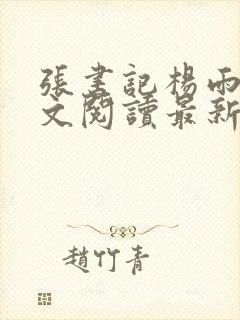 張書記楊雨
文閱讀最新
趙竹青